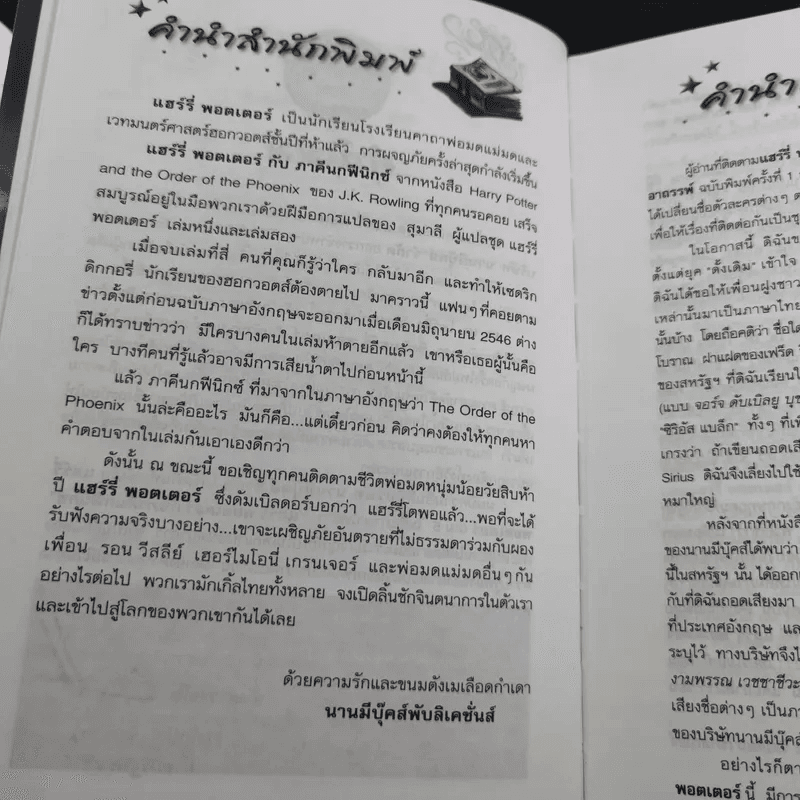 คำนำสำนักพิมพ์
แฮร์รี่ พอตเตอร์ เป็นนักเรียนโรงเรียนคาถาพ่อมดแม่มดและ
เวทมนตร์ศาสตร์ฮอกวอตส์ชั้นปีที่ห้าแล้ว การผจญภัยครั้งล่าสุดกำลังเริ่มขึ้น
แฮร์รี่ พอตเตอร์ กับ ภาคีนกฟีนิกซ์ จากหนังสือ Harry Potter
and the Order of the Phoenix ของ J.K. Rowling ที่ทุกคนรอคอย เสร็จ
สมบูรณ์อยู่ในมือพวกเราด้วยฝีมือการแปลของ สุมาลี ผู้แปลชุด แฮร์รี่
พอตเตอร์ เล่มหนึ่งและเล่มสอง
เมื่อจบเล่มที่สี่ คนที่คุณก็รู้ว่าใคร กลับมาอีก และทำให้เซดริก
ดิกกอรี่ นักเรียนของฮอกวอตส์ต้องตายไป มาคราวนี้ แฟนๆ ที่คอยตาม
ข่าวตั้งแต่ก่อนฉบับภาษาอังกฤษจะออกมาเมื่อเดือนมิถุนายน 2546 ต่าง
ก็ได้ทราบข่าวว่า มีใครบางคนในเล่มห้าตายอีกแล้ว เขาหรือเธอผู้นั้นคือ
ใคร บางทีคนที่รู้แล้วอาจมีการเสียน้ำตาไปก่อนหน้านี้
แล้ว ภาคีนกฟีนิกซ์ ที่มาจากในภาษาอังกฤษว่า The Order of the
Phoenix นั้นล่ะคืออะไร มันก็คือ...แต่เดี๋ยวก่อน คิดว่าคงต้องให้ทุกคนหา
คำตอบจากในเล่มกันเอาเองดีกว่า
ดังนั้น ณ ขณะนี้ ขอเชิญทุกคนติดตามชีวิตพ่อมดหนุ่มน้อยวัยสิบห้า
ปี แฮร์รี่ พอตเตอร์ ซึ่งดัมเบิลดอร์บอกว่า แฮร์รี่โตพอแล้ว...พอที่จะได้
รับฟังความจริงบางอย่าง...เขาจะเผชิญภัยอันตรายที่ไม่ธรรมดาร่วมกับผอง
เพื่อน รอน วีสลีย์ เฮอร์ไมโอนี่ เกรนเจอร์ และพ่อมดแม่มดอื่นๆ กัน
อย่างไรต่อไป พวกเรามักเกิ้ลไทยทั้งหลาย จงเปิดลิ้นชักจินตนาการในตัวเรา
และเข้าไปสู่โลกของพวกเขากันได้เลย
ด้วยความรักและขนมดังเมเลือดกำเดา
นานมีบุ๊คส์พับลิเคชั่นส์
คำนำ
ผู้อ่านที่ติดตามแฮร์รี่
อาถรรพ์ ฉบับพิมพ์ครั้งที่ 1
ได้เปลี่ยนชื่อตัวละครต่างๆ
เพื่อให้เรื่องที่ติดต่อกันเป็นชุ
ในโอกาสนี้ ดิฉันข
ตั้งแต่ยุค "ดั้งเดิม" เข้าใจ
ดิฉันได้ขอให้เพื่อนฝูงชาว
เหล่านั้นมาเป็นภาษาไทย
นั้นบ้าง โดยถือคติว่า ชื่อใด
โบราณ ฝาแฝดของเฟร็ด
ของสหรัฐฯ ที่ดิฉันเรียนใ
(แบบ จอร์จ ดับเบิลยู บุช
"ซิริอัส แบล็ก" ทั้งๆ ที่เพื่
เกรงว่า ถ้าเขียนถอดเสีย
Sirius ดิฉันจึงเลี่ยงไปใช้
หมาใหญ่
หลังจากที่หนังสื
ของนานมีบุ๊คส์ได้พบว่า
นี้ในสหรัฐฯ นั้น ได้ออก
กับที่ดิฉันถอดเสียงมา
ที่ประเทศอังกฤษ และ
ระบุไว้ ทางบริษัทจึงไ
งามพรรณ เวชชาชีวะ
เสียงชื่อต่างๆ เป็นภา
ของบริษัทนานมีบุ๊คส์
อย่างไรก็ตา
พอตเตอร์ นี้ มีการ